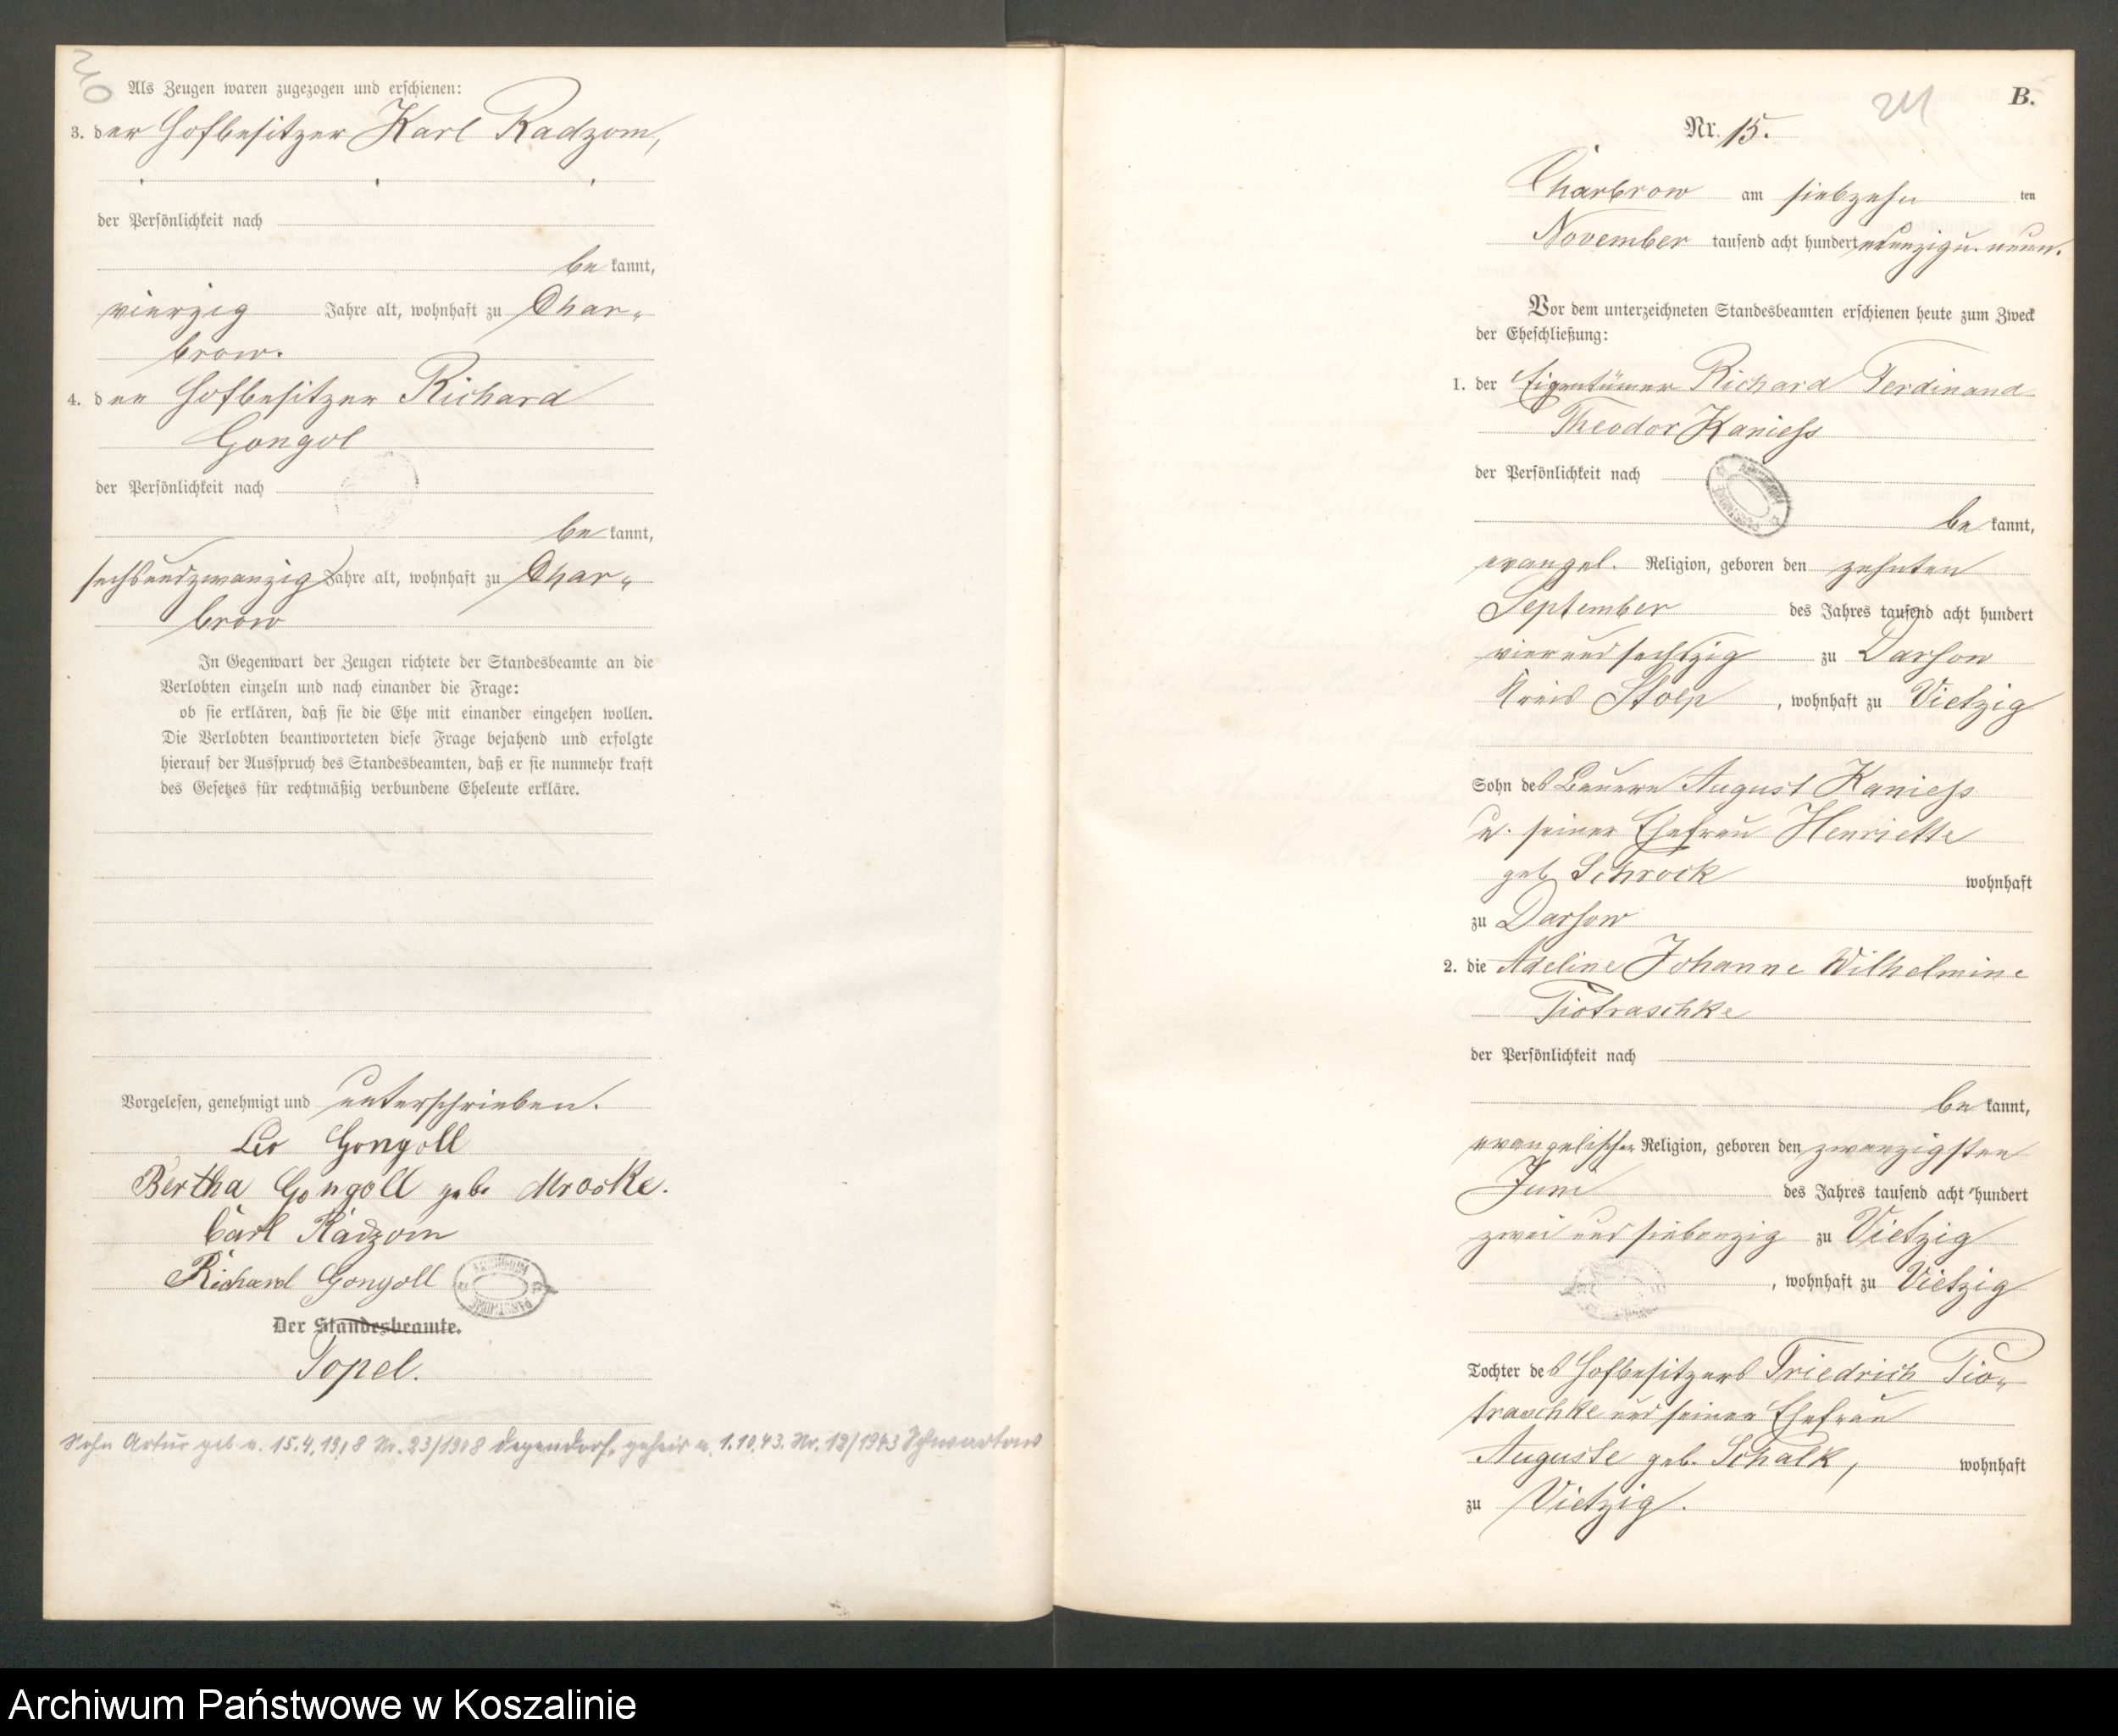 240
Als Zeugen waren zugezogen und erschienen:
3. der Hofbesitzer Karl Radzom,
der Persönlichkeit nach
be kannt,
vierzig Jahre alt, wohnhaft zu Char-
brow.
4. der Hofbesitzer Richard
Gongol
der Persönlichkeit nach
be kannt,
sechsundzwanzig Jahre alt, wohnhaft zu Char-
brow
In Gegenwart der Zeugen richtete der Standesbeamte an die
Verlobten einzeln und nach einander die Frage:
ob sie erklären, daß sie die Ehe mit einander eingehen wollen.
Die Verlobten beantworteten diese Frage bejahend und erfolgte
hierauf der Ausspruch des Standesbeamten, daß er sie nunmehr kraft
des Gesetzes für rechtmäßig verbundene Eheleute erkläre.
Vorgelesen, genehmigt und unterschrieben.
Leo Gongoll
Bertha Gongoll geb. Mroske.
Carl Radzom
Richard Gongoll
Der Standesbeamte.
Topel.
Sohn Artur geb. a. 15.4.1918 Nr. 23/1918 Degendorf, geheir a. 1.10.43. Nr. 12/1943 Schwartow
241
B.
Nr. 15.
Charbrow am siebzehn ten
November tausend acht hundert neunzig u. neun.
Vor dem unterzeichneten Standesbeamten erschienen heute zum Zweck
der Eheschließung:
1. der Eigentümer Richard Ferdinand
Theodor Kaniess
der Persönlichkeit nach
be kannt,
evangel. Religion, geboren den zehnten
September des Jahres tausend acht hundert
vierundsechszig zu Darsow
Kreis Stolp, wohnhaft zu Vietzig
Sohn des Bauern August Kaniess
u. seiner Ehefrau Henriette
geb. Schrock wohnhaft
zu Darsow
2. die Adeline Johanne Wilhelmine
Piotraschke
der Persönlichkeit nach
be kannt,
evangelischer Religion, geboren den zwanzigsten
Juni des Jahres tausend acht hundert
zwei und siebenzig zu Vietzig
, wohnhaft zu Vietzig
Tochter des Hofbesitzers Friedrich Pio-
traschke und seiner Ehefrau
Auguste geb. Schalk, wohnhaft
zu Vietzig.
Archiwum Państwowe w Koszalinie